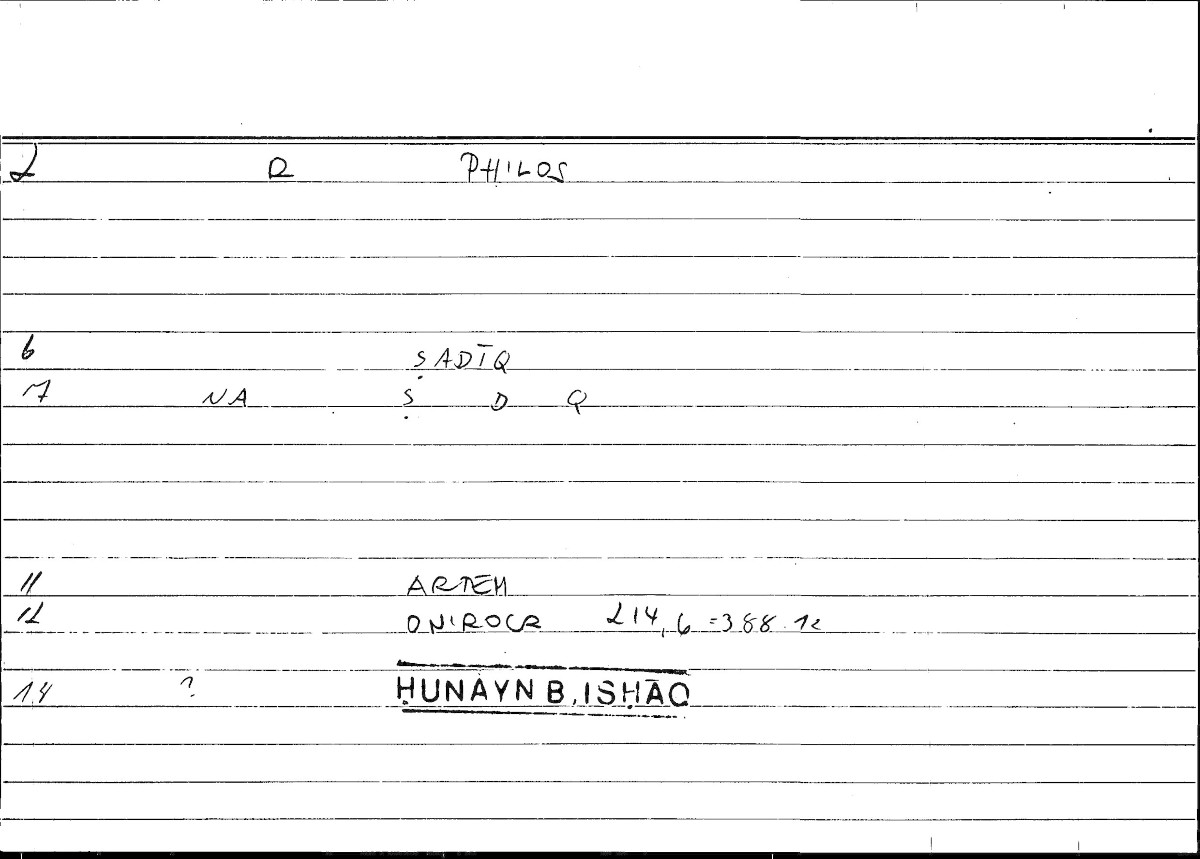 2 R PHILOS
6 ṢADĪQ
7 NA Ṣ D Q
11 ARTEM
12 ONIROCR 214,6 =388.12
14 ? ḤUNAYN B. ISḤĀQ